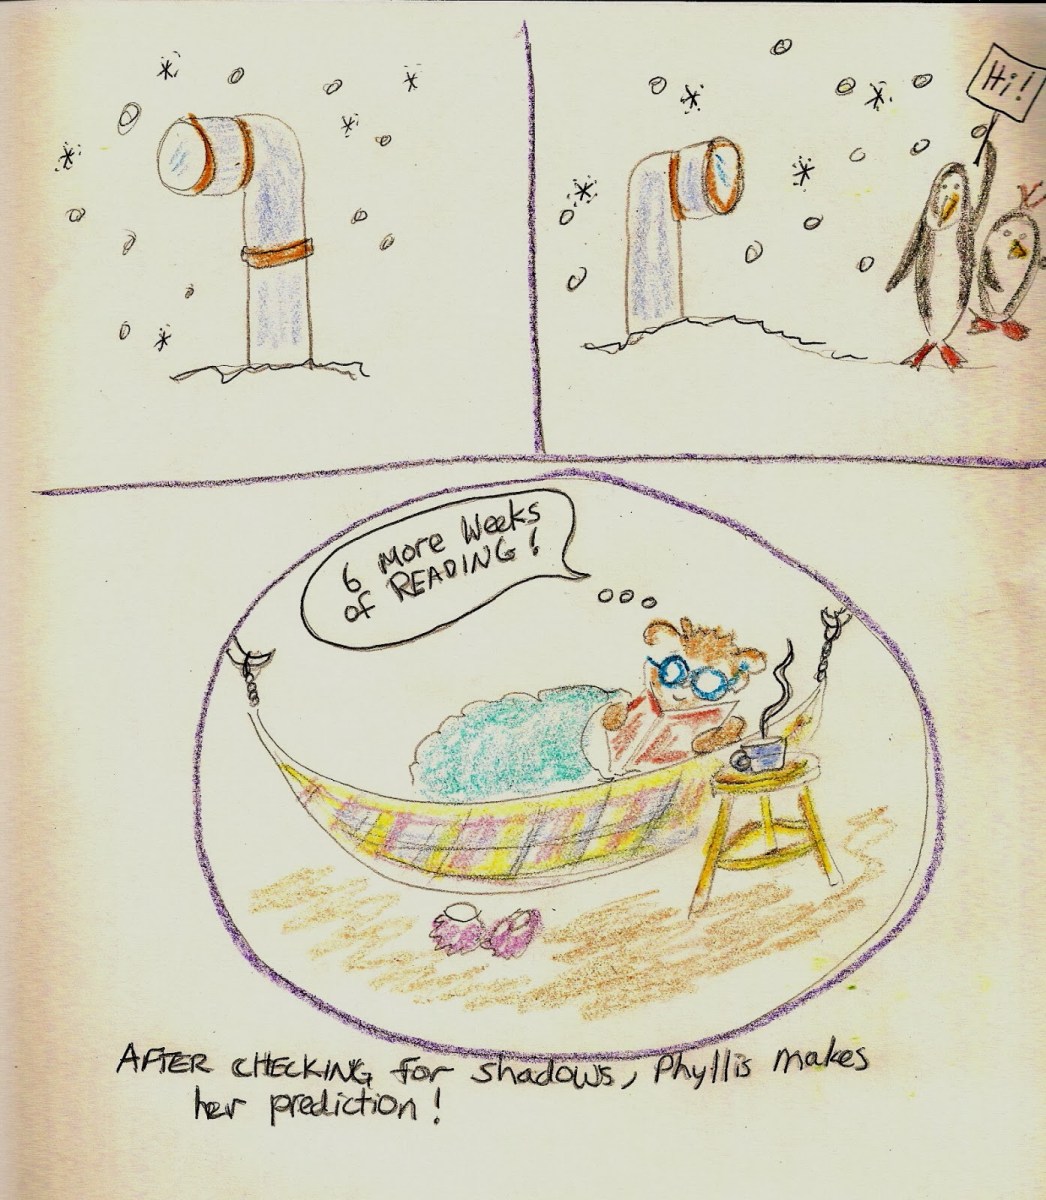 Hi!
6 More Weeks
of READING!
AFTER CHECKING for shadows, Phyllis makes
her prediction!